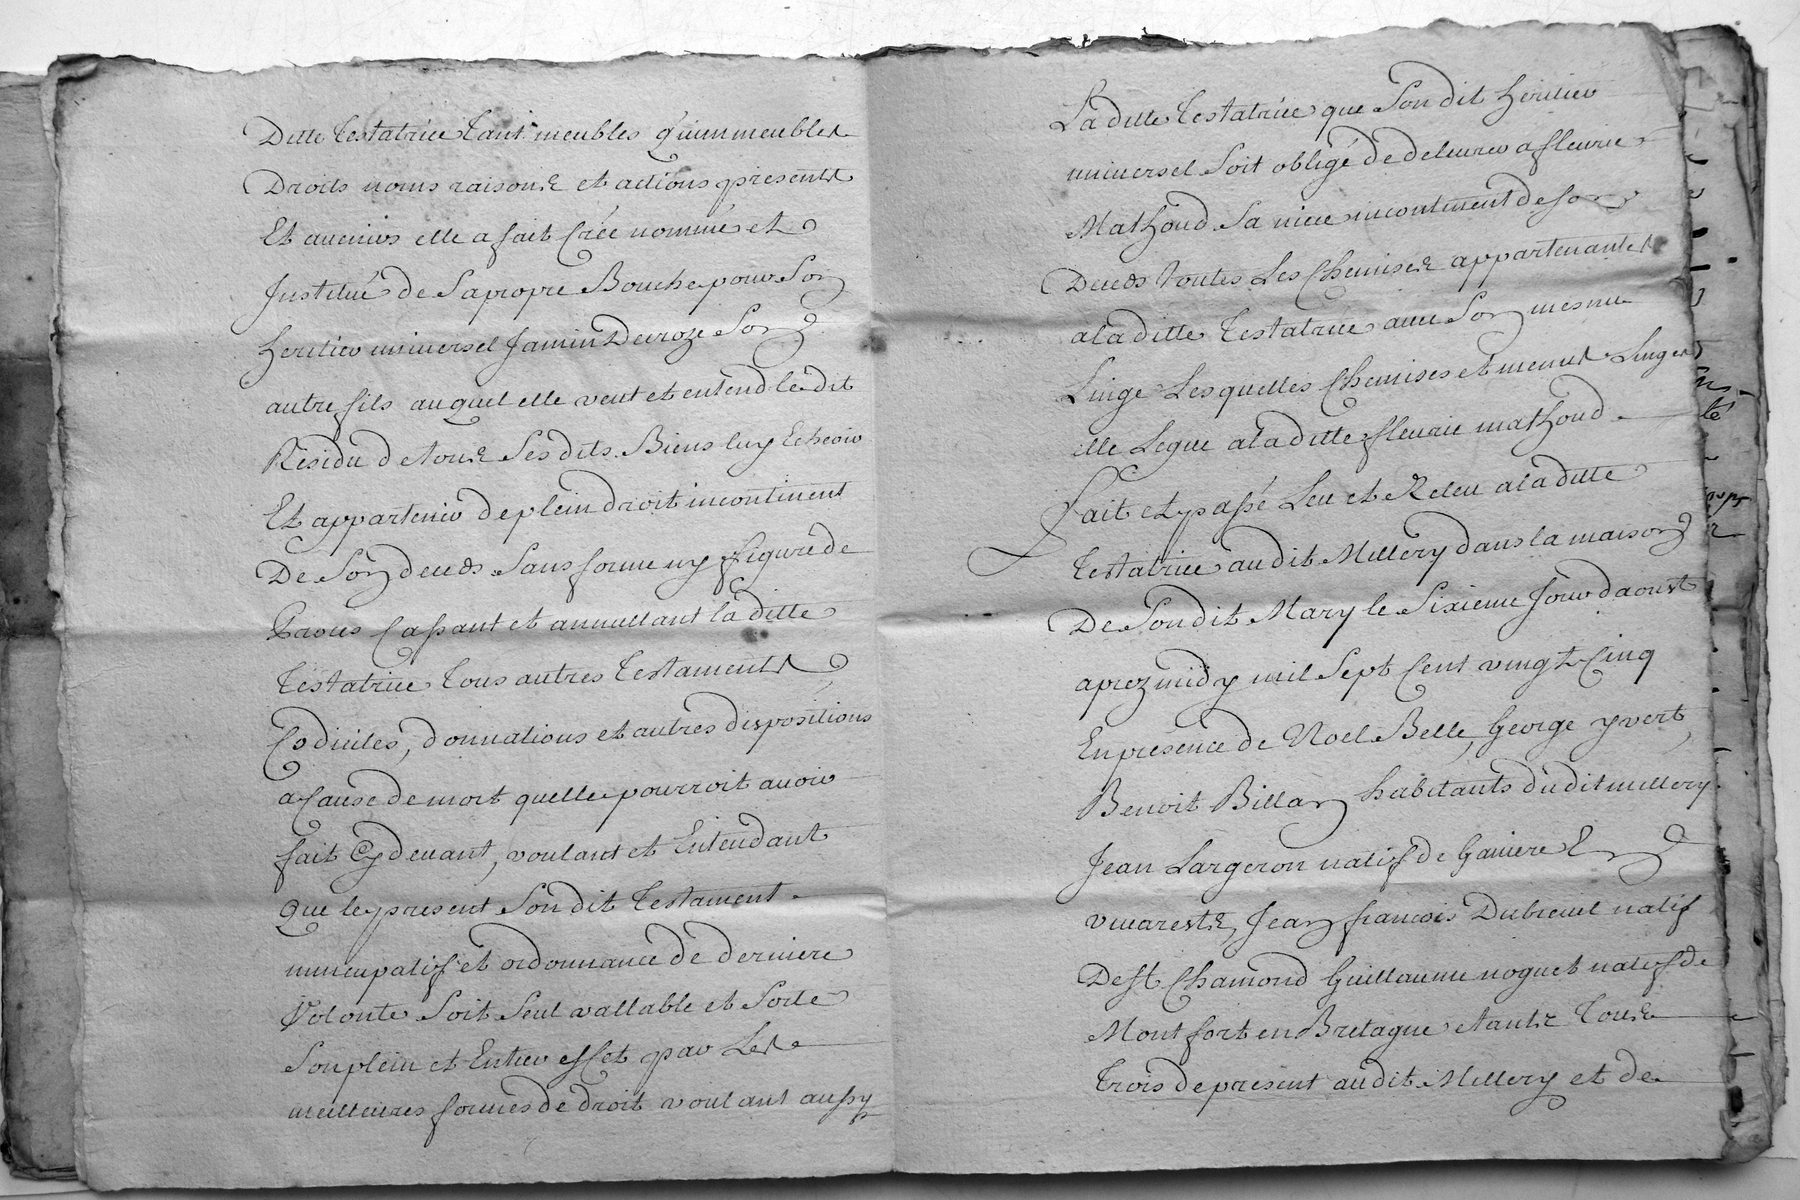 Ditte Testatrice Tant meubles qu'immeubles
Droits noms raisons et actions presents
Et avenirs elle a fait Créé nommé et
Institué de Sa propre Bouche pour Son
heritier universel Jamin Devroze Son
autre fils auquel elle veut et entend le dit
Residu de tous Ses dits Biens luy Echeoir
Et appartenir de plein droit incontinent
De Son deceds Sans forme ny figure de
Procès Cassant et annullant la ditte
Testatrice Tous autres Testaments
Codiciles, donnations et autres dispositions
a Cause de mort quelle pourroit avoir
fait Cy devant, voulant et Entendant
Que le present Son dit Testament
nuncupatif et ordonnance de derniere
Volonte Soit Seul vallable et Sorte
Son plein et Entier effet par Les
meilleures formes de droit voulant aussy
La ditte Testatrice que Son dit heritier
universel Soit obligé de delivrer a fleurie
Mathoud Sa niece incontinent de Son
Deceds Toutes Les Chemises appartenantes
a la ditte Testatrice avec Son menu
Linge Lesquelles Chemises et menus Linges
elle Legue a la ditte fleurie mathoud
Fait et passé Leu et Releu a la ditte
Testatrice au dit Millery dans la maison
De Son dit Mary le Sixieme Jour d'aoust
aprez midy mil Sept Cent vingt Cinq
En presence de Noel Belle, George yvert,
Benoit Billan habitants du dit millery
Jean Largeron natif de Ganiere En
vivarests, Jean francois Dubreuil natif
De St. Chamond Guillaume noguet natif de
Montfort en Bretagne Tous
Trois de present au dit Millery et de